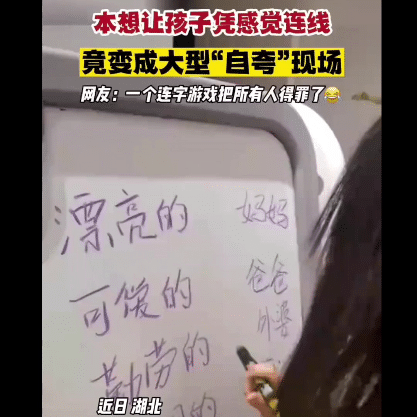 本想让孩子凭感觉连线
竟变成大型“自夸”现场
网友：一个连字游戏把所有人得罪了😂
漂亮的 妈妈
可爱的 爸爸
外婆
勤劳的
的
近日 湖北